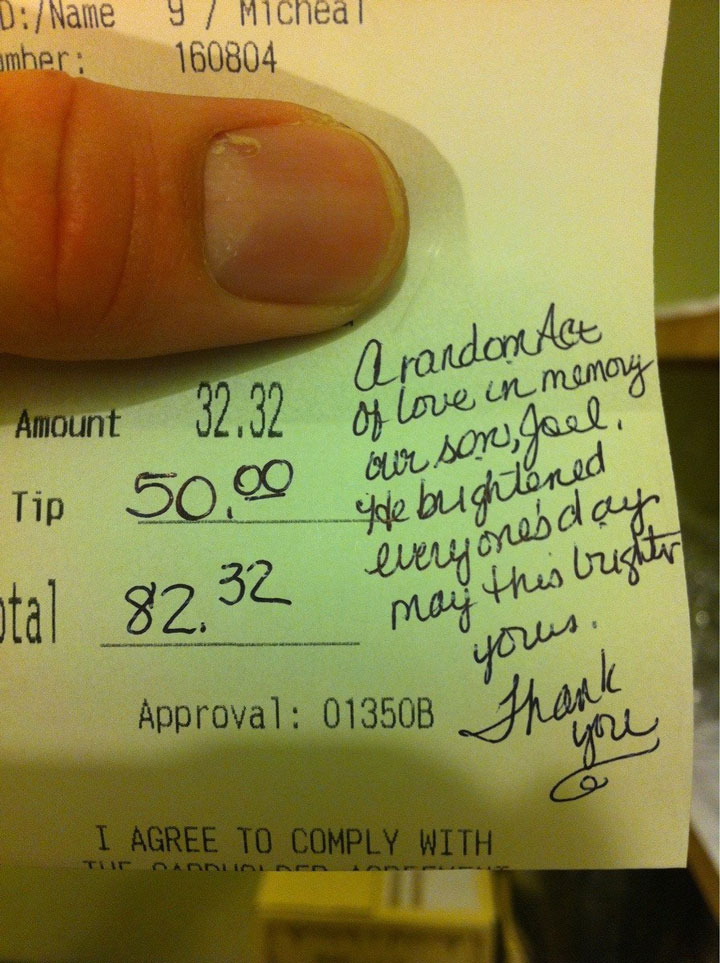 D:/Name 9 / Micheal
mber: 160804
Amount 32.32
Tip 50.00
otal 82.32
A random Act
of love in memory
our son, Joel.
He brightened
everyone's day
may this brighten
yours.
Thank
you
Approval: 01350B
I AGREE TO COMPLY WITH
THE CARDHOLDER AGREEMENT